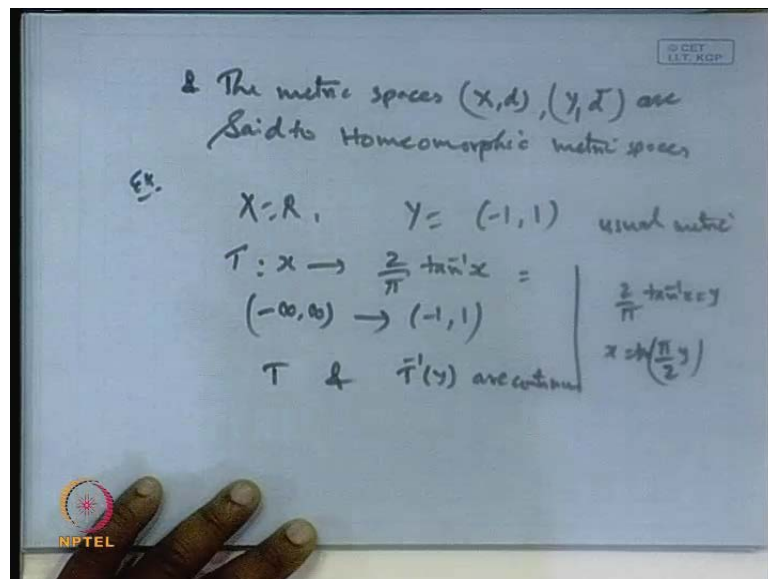 © CET
I.I.T. KGP
& The metric spaces (X,d), (Y,d̄) are
Said to Homeomorphic metric spaces
Ex.
X=R, Y= (-1,1) usual metric
T : x → 2/π tan⁻¹x =
(-∞,∞) → (-1,1)
T & T⁻¹(y) are continu
2/π tan⁻¹x=y
x = (π/2 y)
NPTEL